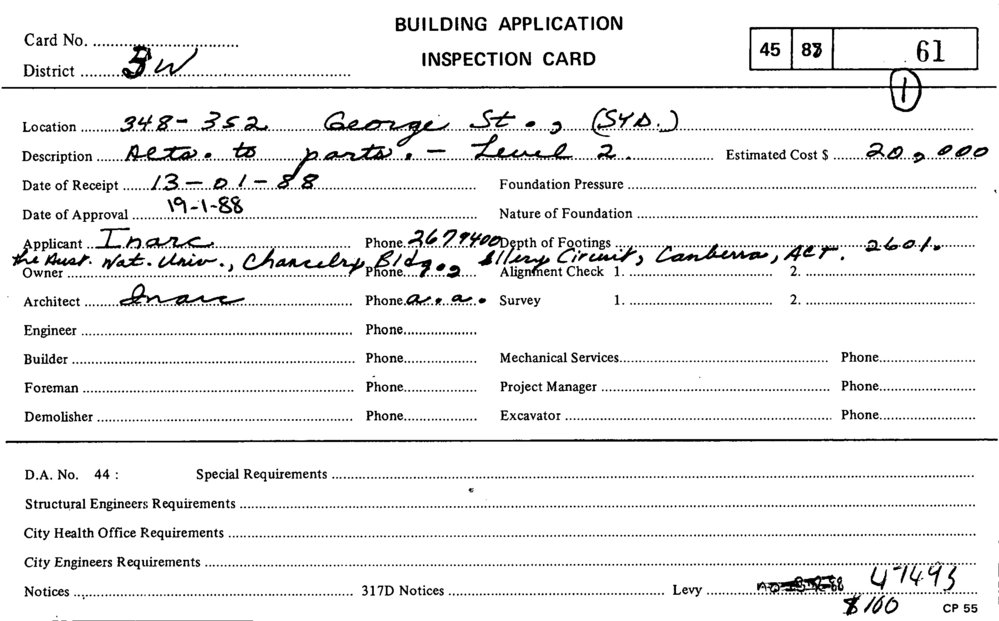 BUILDING APPLICATION
INSPECTION CARD
Card No.
District BW
45 88 61
1
Location 348-352 George St., (SYD.)
Description Alts. to parts. - Level 2. Estimated Cost $ 20,000
Date of Receipt 13-01-88 Foundation Pressure
Date of Approval 19-1-88 Nature of Foundation
Applicant Inarc Phone 2679400 Depth of Footings
the Aust. Nat. Univ., Chancelry Bldg., Ellery Circuit, Canberra, ACT. 2601.
Owner Phone Alignment Check 1. 2.
Architect Inarc Phone a.a. Survey 1. 2.
Engineer Phone
Builder Phone Mechanical Services Phone
Foreman Phone Project Manager Phone
Demolisher Phone Excavator Phone
D.A. No. 44 : Special Requirements
Structural Engineers Requirements
City Health Office Requirements
City Engineers Requirements
Notices 317D Notices Levy 471493
$100 CP 55